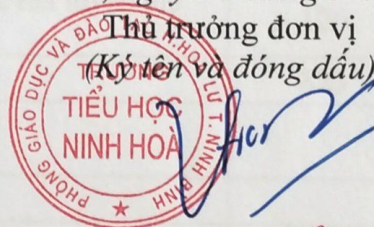 Thủ trưởng đơn vị
(Ký tên và đóng dấu)
PHÒNG GIÁO DỤC VÀ ĐÀO H. HOA LƯ T. NINH BÌNH
TRƯỜNG
TIỂU HỌC
NINH HOÀ